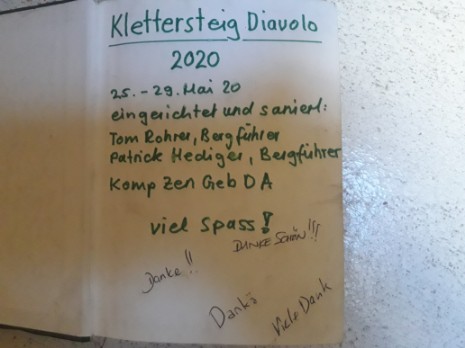 Klettersteig Diavolo
2020
25. - 29. Mai 20
eingerichtet und saniert:
Tom Rohrer, Bergführer
Patrick Hediger, Bergführer
Komp Zen Geb D A
viel Spass!
DANKE SCHÖN!!!
Danke!!
Dankä
Viele Dank